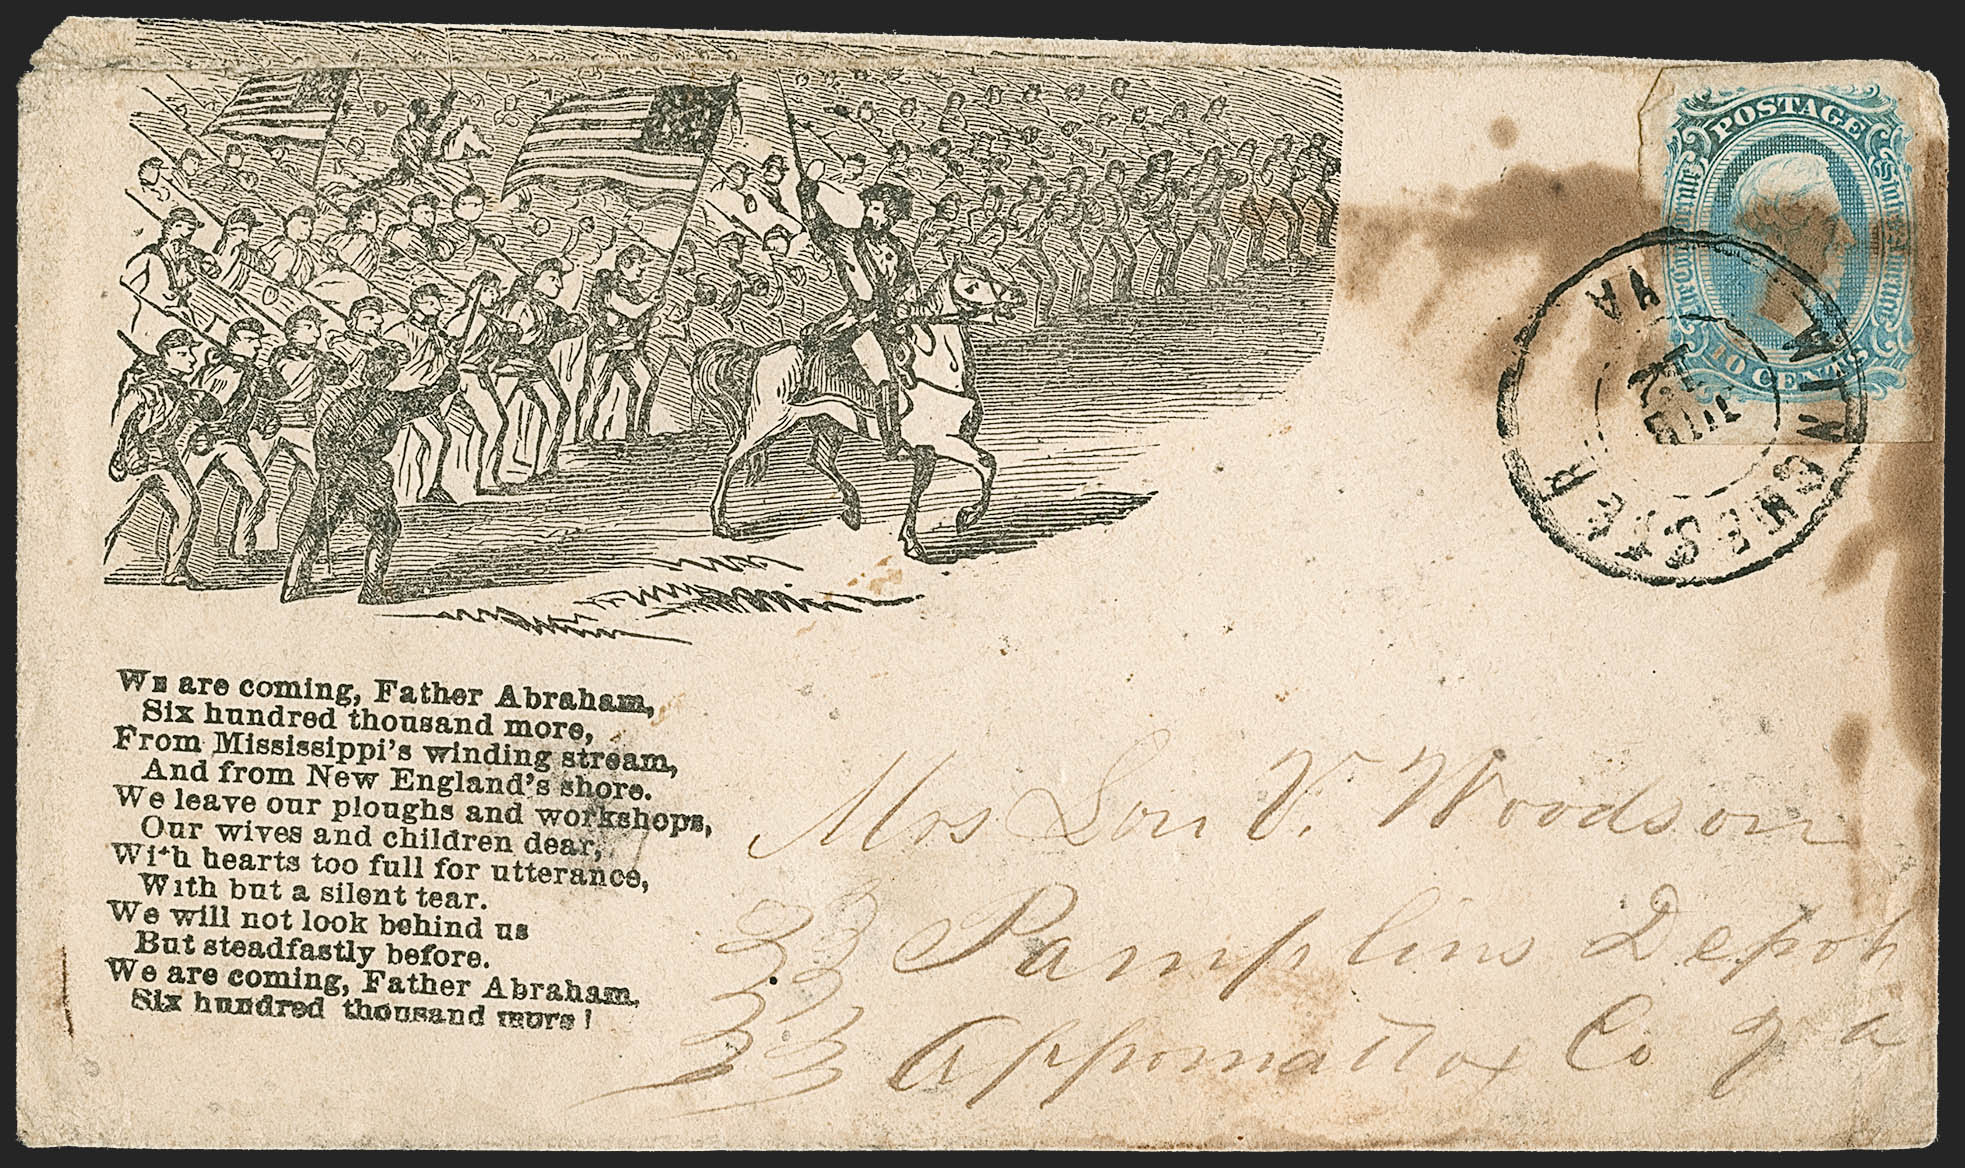 We are coming, Father Abraham,
Six hundred thousand more,
From Mississippi's winding stream,
And from New England's shore.
We leave our ploughs and workshops,
Our wives and children dear,
With hearts too full for utterance,
With but a silent tear.
We will not look behind us
But steadfastly before.
We are coming, Father Abraham,
Six hundred thousand more!
POSTAGE
The Confederate States of America
10 CENTS
WINCHESTER VA
JUL
Mrs Lou V. Woodson
Pamplins Depot
Appomattox Co Va